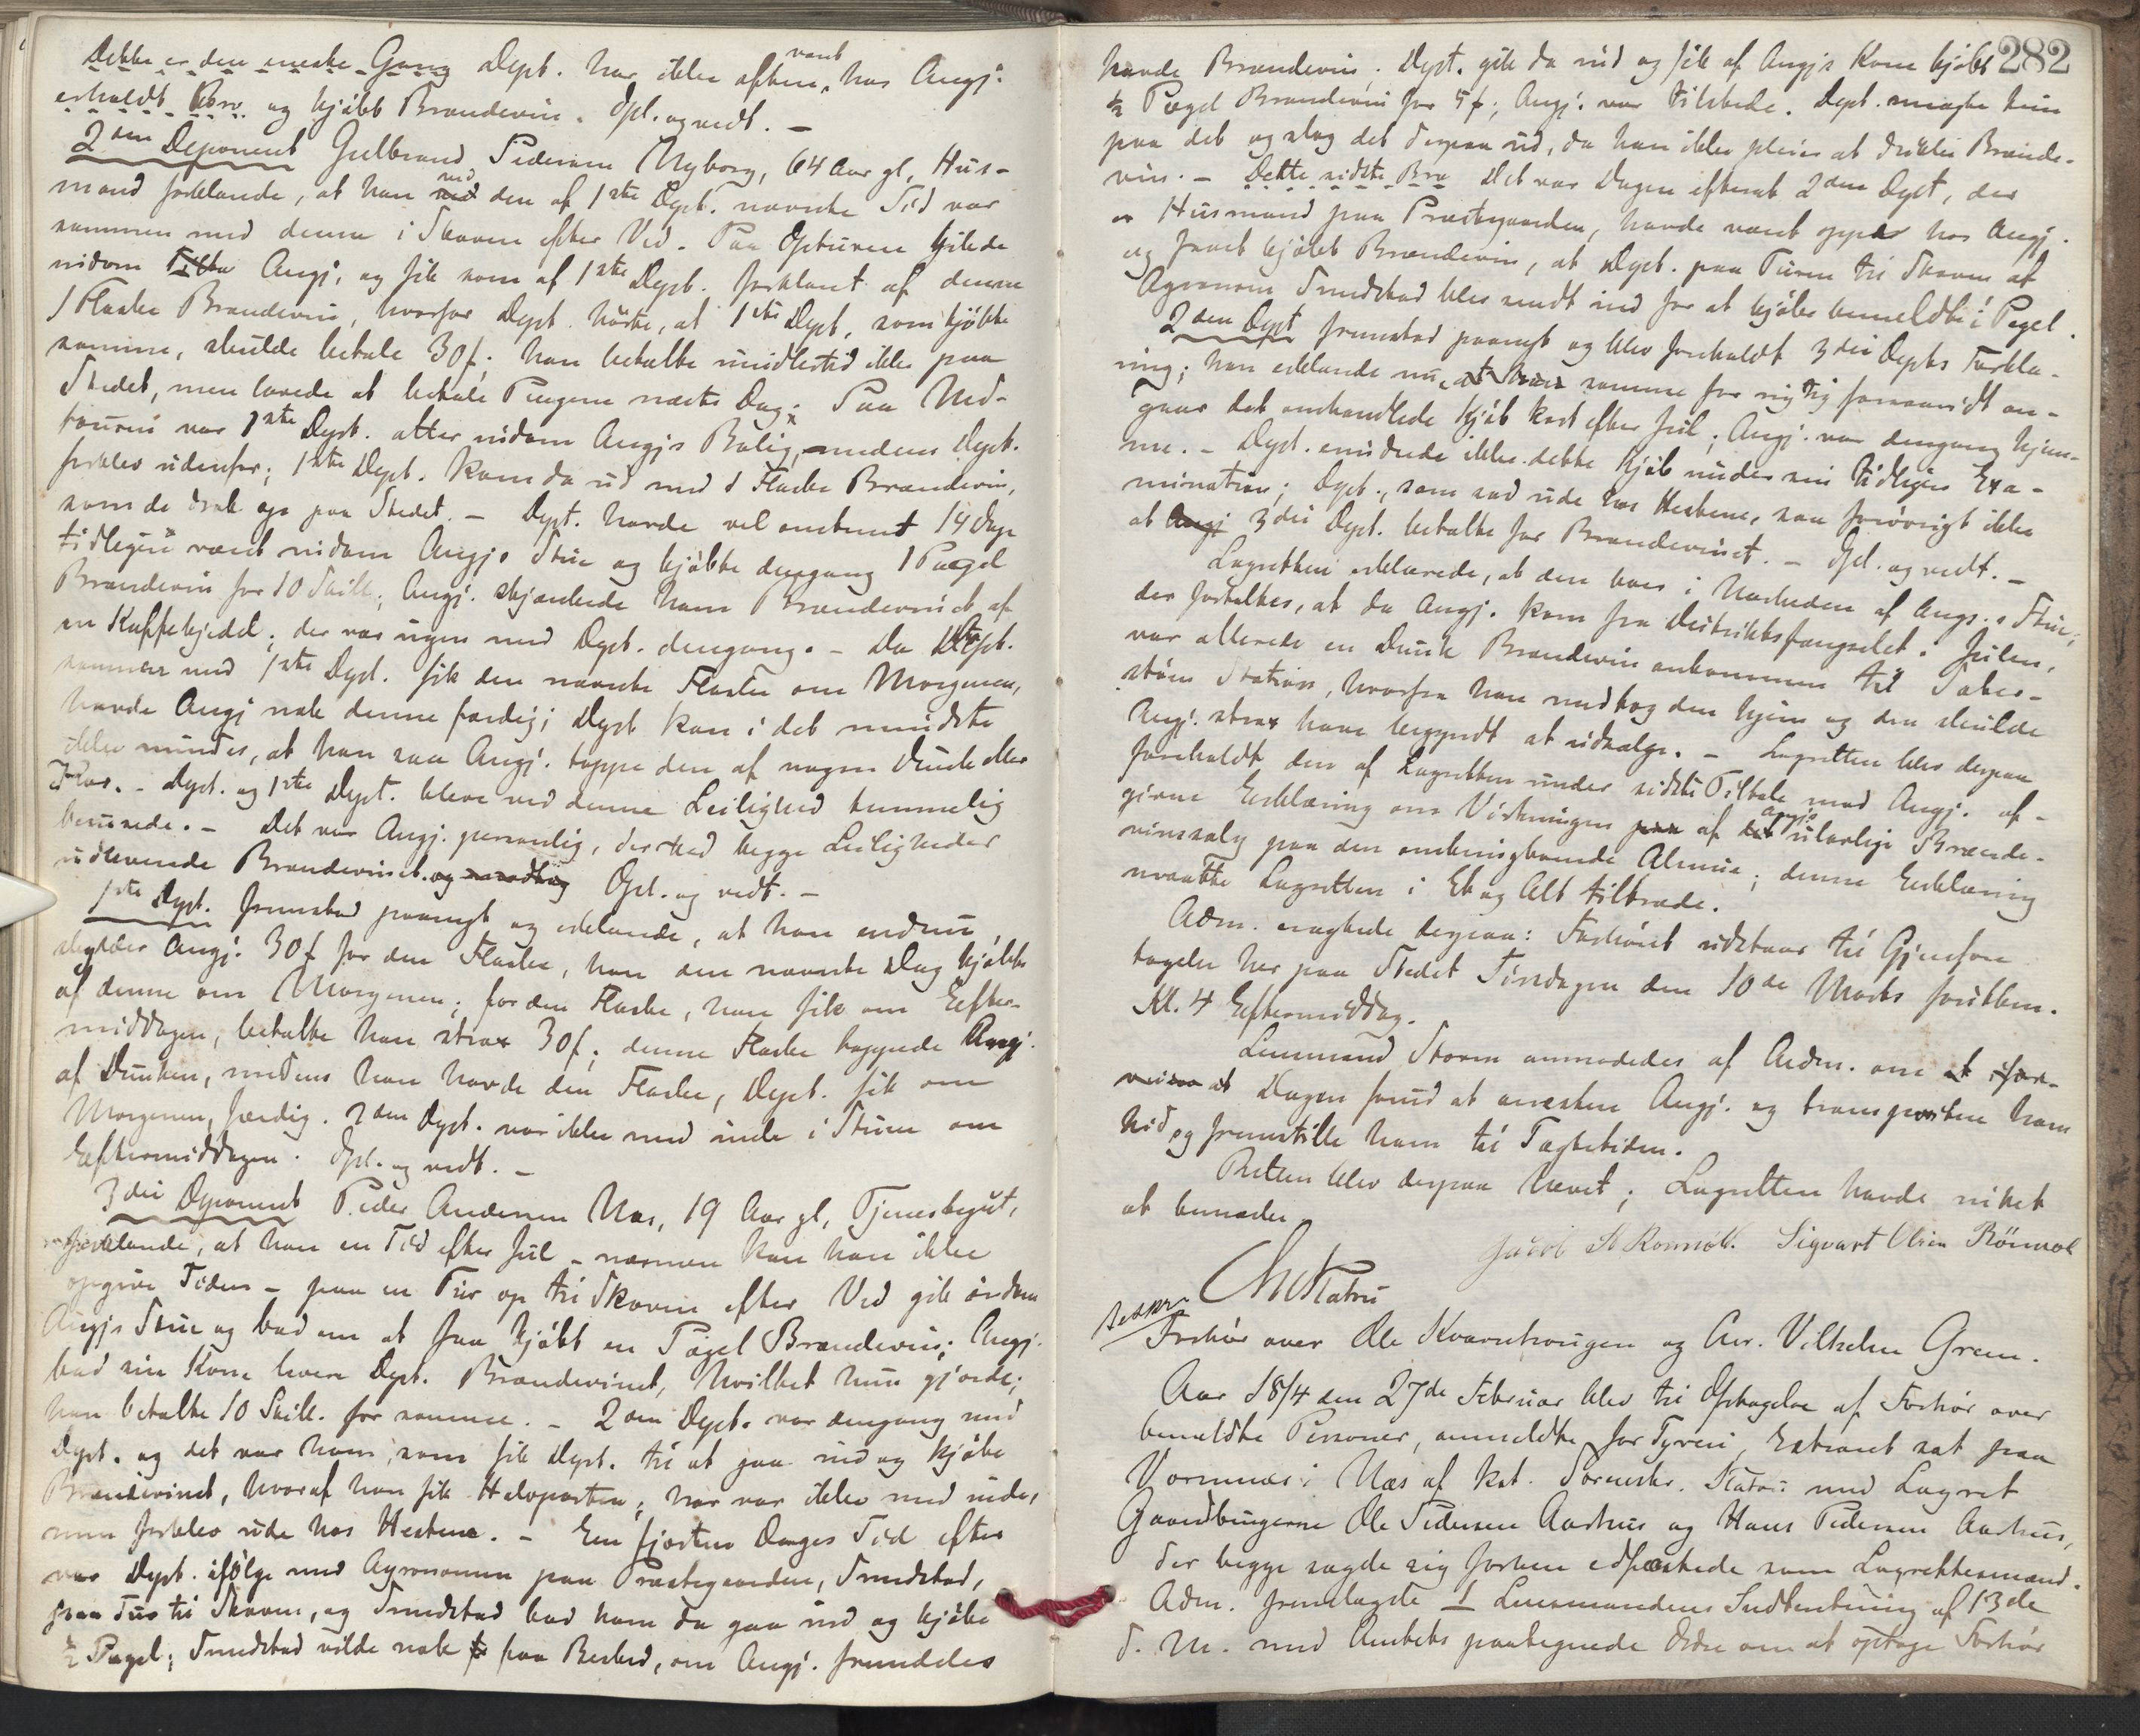 Dette er den eneste Gang Dept. har ikke oftere varet hos Angj.
erholdt Brv. og kjøbt Brændevin. Opl. og vedt. —
2den Deponent Gulbrand Pedersen Nyborg, 64 Aar gl, Hus-
mand forklarede, at han ved den af 1ste Dept. nævnte Tid var
sammen med denne i Skoven efter Ved. Paa Opturen gik de
indom Angj. og fik som af 1ste Dept. forklaret af denne
1 Flaske Brændevin, hvorfor Dept. hørte, at 1ste Dept, som kjøbte
samme, skulde betale 30 ſ; han betalte imidlertid ikke paa
Stedet, men lovede at betale Pengene næste Dag. Paa Ned-
touren var 1ste Dept. atter indom Angjs Bolig, medens Dept.
forblev udenfor; 1ste Dept. kom da ud med 1 Flaske Brændevin,
som de drak op paa Stedet. — Dept. havde vel omtrent 14 Dage
tidligere været indom Angjs Stue og kjøbte dengang 1 Pægel
Brændevin for 10 Skill.; Angj. skjænkede ham Brændevinet af
en Kaffekjedel; der var ingen med Dept. dengang. — Da Dept.
sammen med 1ste Dept. fik den nævnte Flaske om Morgenen,
havde Angj nok denne færdig; Dept kan i det mindste
ikke mindes, at han saa Angj. tappe den af nogen Dunk eller
Kar. — Dept. og 1ste Dept. bleve ved denne Leilighed temmelig
berusede. — Det var Angj. personlig, der ved begge Leiligheder
udleverede Brændevinet og modtog Opl. og vedt. —
1ste Dept. fremstod paanyt og erklærede, at han endnu
skylder Angj. 30 ſ for den Flaske, han den nævnte Dag kjøbte
af denne om Morgenen; for den Flaske, han fik om Efter-
middagen, betalte han strax 30 ſ; denne Flaske tappede Angj.
af Dunken, medens han havde den Flaske, Dept. fik om
Morgenen, færdig. 2den Dept. var ikke med inde i Stuen om
Eftermiddagen. Opl. og vedt. —
3die Deponent Peder Andersen Næs, 19 Aar gl, Tjenestegut,
forklarede, at han en Tid efter Jul — nærmere kan han ikke
opgive Tiden — paa en Tur op til Skoven efter Ved gik indom
Angjs Stue og bad om at faa kjøbt en Pægel Brændevin; Angj.
bad sin Kone levere Dept. Brændevinet, hvilket hun gjorde;
han betalte 10 Skill. for samme. — 2den Dept. var dengang med
Dept. og det var ham, som fik Dept. til at gaa ind og kjøbe
Brændevinet, hvoraf han fik Halvparten; han var ikke med inde,
men forblev ude hos Hestene. — En fjorten Dages Tid efter
var Dept. ifølge med Agronomen paa Præstegaarden, Smedstad,
paa Tur til Skoven, og Smedstad bad ham da gaa ind og kjøbe
½ Pægel; Smedstad vilde nok faa Besked, om Angj. fremdeles
282
havde Brændevin. Dept. gik da ind og fik af Angjs Kone kjøbt
½ Pægel Brændevin for 5 ſ; Angj. var tilstede. Dept. smagte kun
paa det og slog det derpaa ud, da han ikke pleier at drikke Brænde-
vin. — Dette sidste Brv Det var Dagen efterat 2den Dept, der
er Husmand paa Præstegaarden, havde været oppe hos Angj.
og faaet kjøbt Brændevin, at Dept. paa Turen til Skoven af
Agronom Smedstad blev sendt ind for at kjøbe bemeldte ½ Pægel.
2den Dept fremstod paanyt og blev foreholdt 3die Depts Forkla-
ring; han erklærede nu at have samme for rigtig forsaavidt an-
gaar det omhandlede Kjøb kort efter Jul; Angj. var dengang hjem-
me. — Dept. erindrede ikke dette Kjøb under sin tidligere Exa-
mination; Dept., som sad ude hos Hestene, saa forøvrigt ikke
at Angj 3die Dept. betalte for Brændevinet. — Opl. og vedt. —
Lagretten erklærede, at den boer i Nærheden af Angs. s Stue;
der fortaltes, at da Angj. kom fra Distriktsfængselet i Julen,
var allerede en Dunk Brændevin ankommen til Taber-
støm Station, hvorfra han medtog den hjem og den skulde
Angj. strax have begyndt at udsælge. — Lagretten blev derpaa
foreholdt den af Lagretten under sidste Tiltale mod Angj. af-
givne Erklæring om Virkningen paa af det Angjs ulovlige Brænde-
vinssalg paa den omkringboende Almue; denne Erklæring
maatte Lagretten i Et og Alt tiltræde.
Adm. eragtede derpaa: Forhøret udstaar til Gjenfore
tagelse her paa Stedet Tirsdagen den 10de Marts førstkom.
Kl. 4 Eftermiddag.
Lensmand Storm anmodedes af Adm. om at
at Dagen forud at arrestere Angj. og transportere ham
hid og fremstille ham til Tægtetiden.
Retten blev derpaa hævet; Lagretten havde intet
at bemærke
Sigvart Olsen Rönnok
Forhør over Ole Kvarnhougen og Anr. Vilhelm Green.
Aar 1874 den 27de Februar blev til Optagelse af Forhør over
bemeldte Personer, anmeldte for Tyveri, Extraret sat paa
Vormnæs i Næs af kst. Sorenskr. med Lagret
Gaardbrugerne Ole Pedersen Aarhus og Hans Pedersen Aarhus,
der begge sagde sig forhen edfæstede som Lagrettesmænd.
Adm. fremlagde 1 Lensmandens Indberetning af 13de
d. M. med Amtets paategnede Ordre om at optage Forhør